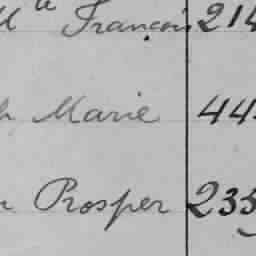 François 214
Marie 44
Prosper 235